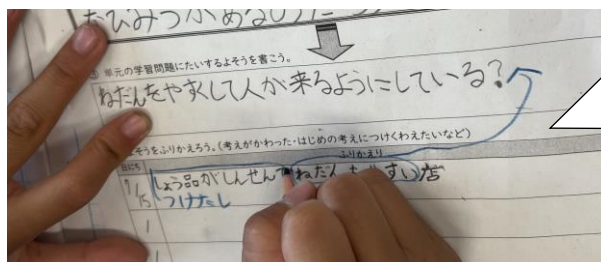 おひみつがあるのだろう
単元の学習問題にたいするよそうを書こう。
ねだんをやすくして人が来るようにしている?
そうをふりかえろう。(考えがかわった・はじめの考えにつけくわえたいなど)
日にち
ふりかえり
9/15
しょう品がしんせんで ねだんも やすい店
つけたし
1
1